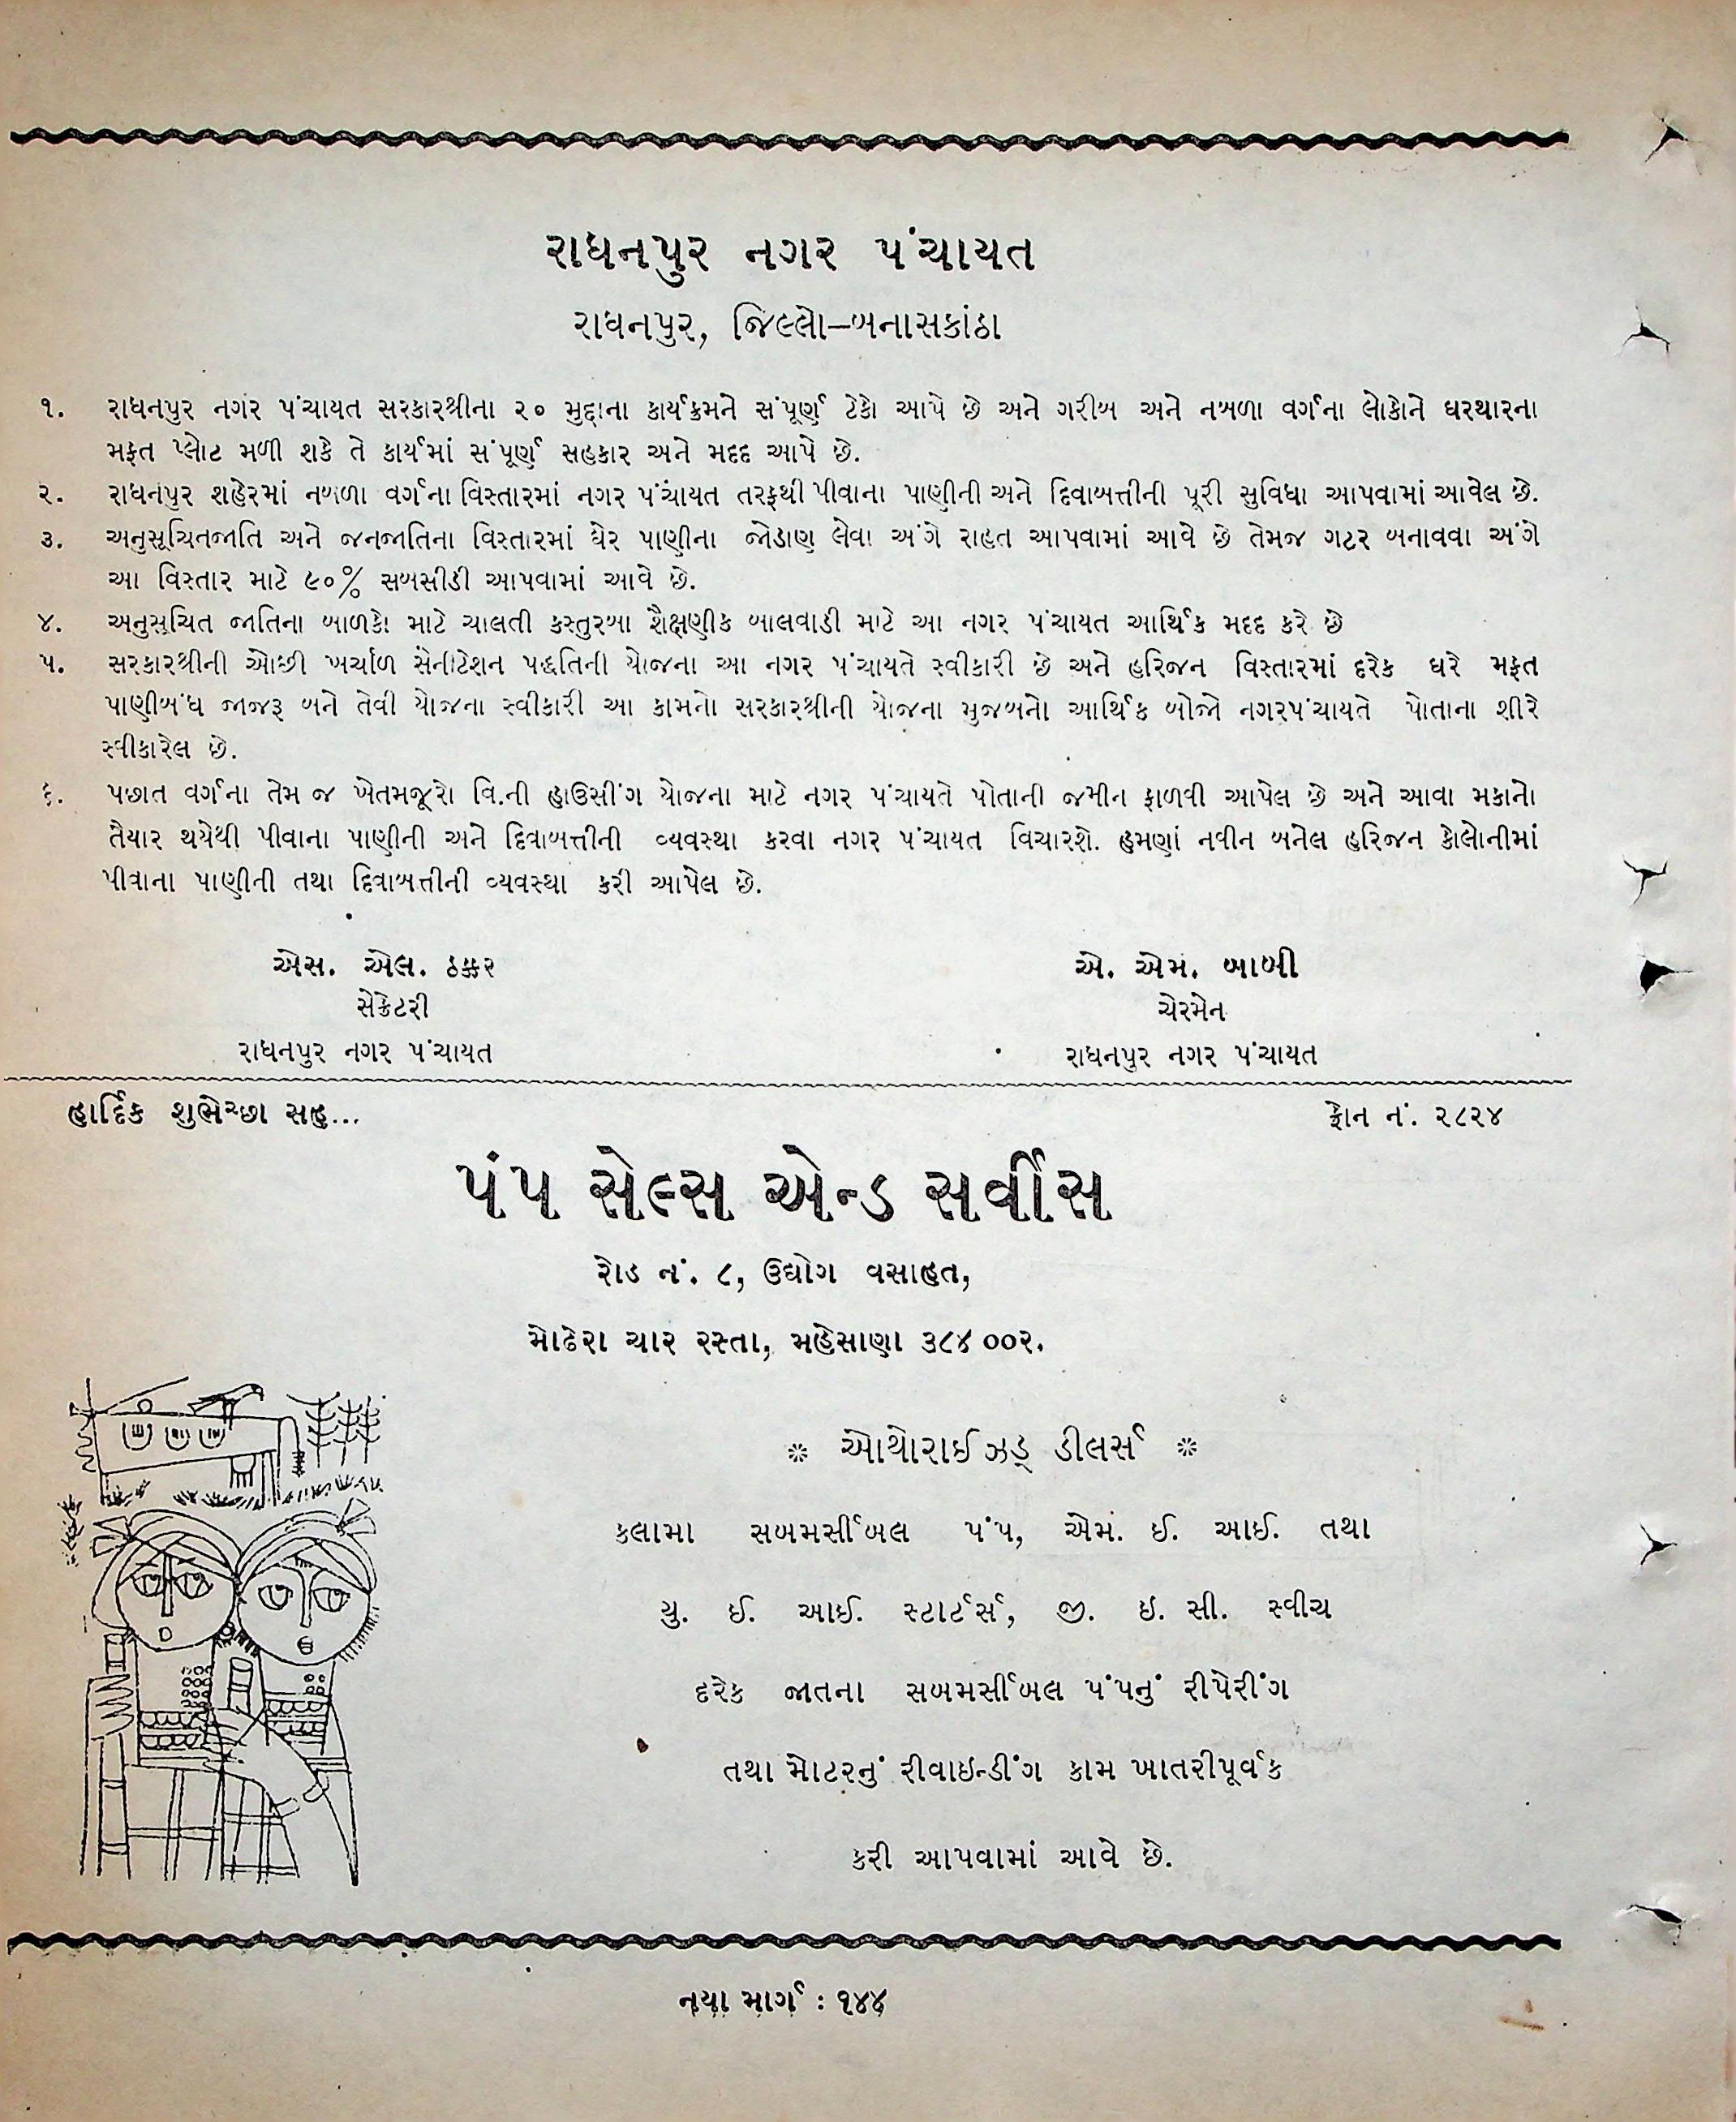 રાધનપુર નગર પંચાયત
રાધનપુર, જિલ્લો–બનાસકાંઠા
૧. રાધનપુર નગર પંચાયત સરકારશ્રીના ૨૦ મુદ્દાના કાર્યક્રમને સંપૂર્ણ ટેકો આપે છે અને ગરીબ અને નબળા વર્ગના લોકોને ઘરથારના
મફત પ્લોટ મળી શકે તે કાર્યમાં સંપૂર્ણ સહકાર અને મદદ આપે છે.
૨. રાધનપુર શહેરમાં નબળા વર્ગના વિસ્તારમાં નગર પંચાયત તરફથી પીવાના પાણીની અને દિવાબત્તીની પૂરી સુવિધા આપવામાં આવેલ છે.
૩. અનુસૂચિતજાતિ અને જનજાતિના વિસ્તારમાં ઘેર પાણીના જોડાણ લેવા અંગે રાહત આપવામાં આવે છે તેમજ ગટર બનાવવા અંગે
આ વિસ્તાર માટે ૯૦% સબસીડી આપવામાં આવે છે.
૪. અનુસુચિત જાતિના બાળકો માટે ચાલતી કસ્તુરબા શૈક્ષણીક બાલવાડી માટે આ નગર પંચાયત આર્થિક મદદ કરે છે
૫. સરકારશ્રીની ઓછી ખર્ચાળ સેનીટેશન પદ્ધતિની યોજના આ નગર પંચાયતે સ્વીકારી છે અને હરિજન વિસ્તારમાં દરેક ઘરે મફત
પાણીબંધ જાજરૂ બને તેવી યોજના સ્વીકારી આ કામનો સરકારશ્રીની યોજના મુજબનો આર્થિક બોજો નગરપંચાયતે પોતાના શીરે
સ્વીકારેલ છે.
૬. પછાત વર્ગના તેમ જ ખેતમજૂરો વિ.ની હાઉસીંગ યોજના માટે નગર પંચાયતે પોતાની જમીન ફાળવી આપેલ છે અને આવા મકાનો
તૈયાર થયેથી પીવાના પાણીની અને દિવાબત્તીની વ્યવસ્થા કરવા નગર પંચાયત વિચારશે. હમણાં નવીન બનેલ હરિજન કોલોનીમાં
પીવાના પાણીની તથા દિવાબત્તીની વ્યવસ્થા કરી આપેલ છે.
એસ. એલ. ઠક્કર
સેક્રેટરી
રાધનપુર નગર પંચાયત
એ. એમ. બાબી
ચેરમેન
રાધનપુર નગર પંચાયત
હાર્દિક શુભેચ્છા સહ...
ફોન નં. ૨૮૨૪
પંપ સેલ્સ એન્ડ સર્વીસ
રોડ નં. ૮, ઉદ્યોગ વસાહત,
મોઢેરા ચાર રસ્તા, મહેસાણા ૩૮૪ ૦૦૨.
* ઓથોરાઈઝડ્ ડીલર્સ *
કલામા સબમર્સીબલ પંપ, એમ. ઈ. આઈ. તથા
યુ. ઈ. આઈ. સ્ટાર્ટર્સ, જી. ઇ. સી. સ્વીચ
દરેક જાતના સબમર્સીબલ પંપનું રીપેરીંગ
તથા મોટરનું રીવાઇન્ડીંગ કામ ખાતરીપૂર્વક
કરી આપવામાં આવે છે.
નયા માર્ગ : ૧૪૪